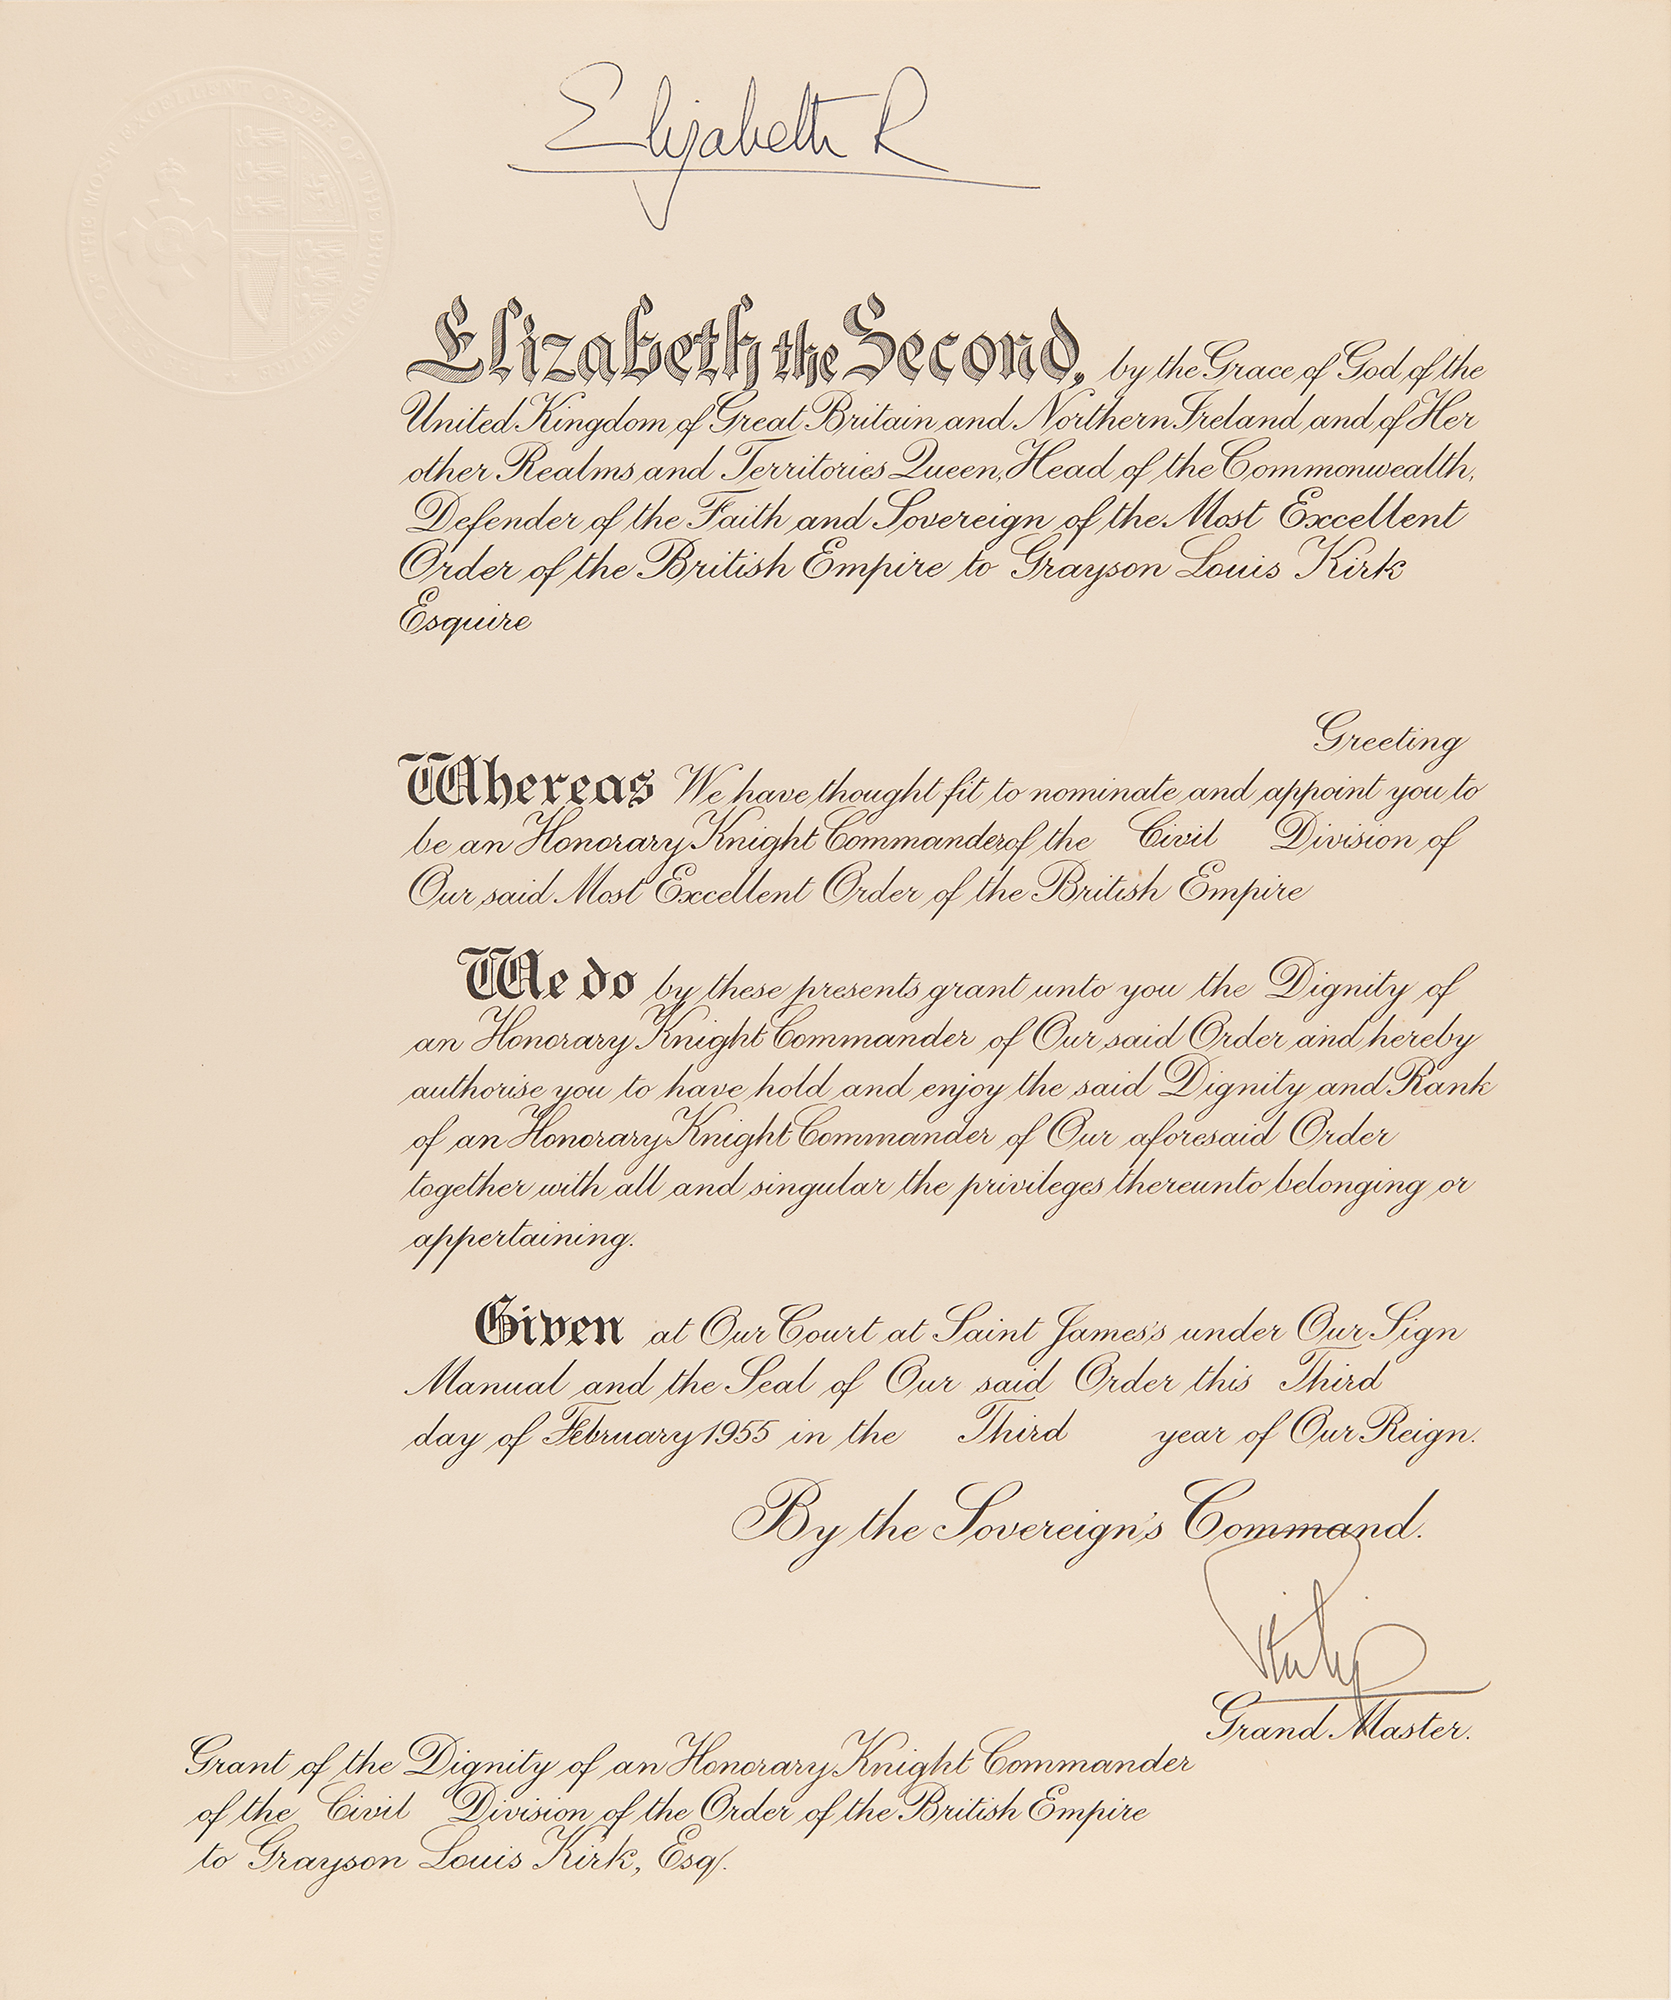 Elizabeth R
Elizabeth the Second, by the Grace of God of the
United Kingdom of Great Britain and Northern Ireland and of Her
other Realms and Territories Queen, Head of the Commonwealth,
Defender of the Faith and Sovereign of the Most Excellent
Order of the British Empire to Grayson Louis Kirk
Esquire
Greeting
Whereas We have thought fit to nominate and appoint you to
be an Honorary Knight Commander of the Civil Division of
Our said Most Excellent Order of the British Empire
We do by these presents grant unto you the Dignity of
an Honorary Knight Commander of Our said Order and hereby
authorise you to have hold and enjoy the said Dignity and Rank
of an Honorary Knight Commander of Our aforesaid Order
together with all and singular the privileges thereunto belonging or
appertaining.
Given at Our Court at Saint James's under Our Sign
Manual and the Seal of Our said Order this Third
day of February 1955 in the Third year of Our Reign.
By the Sovereign's Command.
Philip
Grand Master.
Grant of the Dignity of an Honorary Knight Commander
of the Civil Division of the Order of the British Empire
to Grayson Louis Kirk, Esq.